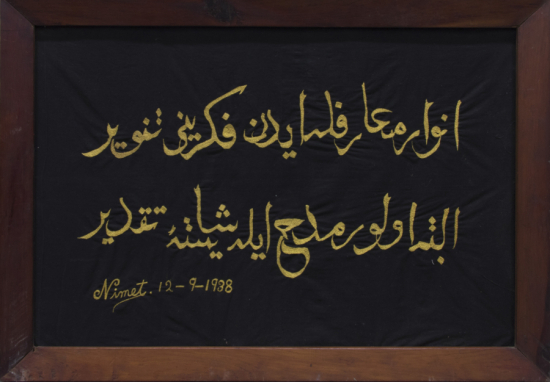 انوار معارفله ايدن فكرينى تنوير
البته اولور مدح ايله شايستهٔ تقدير
Nimet. 12-9-1938